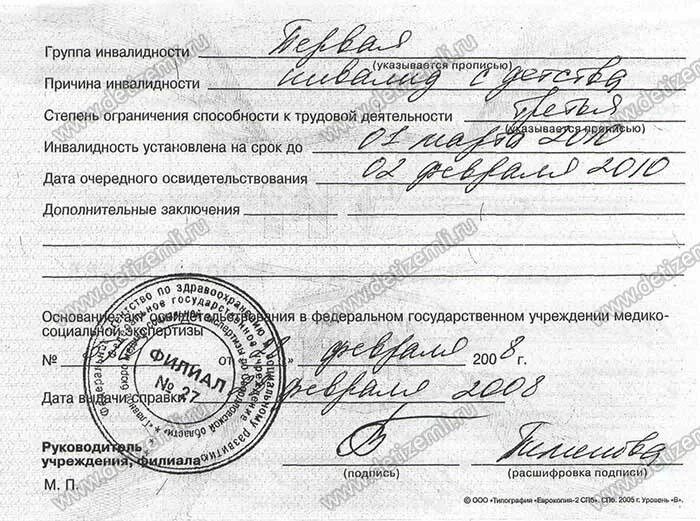 Группа инвалидности Первая
(указывается прописью)
Причина инвалидности инвалид с детства
Степень ограничения способности к трудовой деятельности третья
(указывается прописью)
Инвалидность установлена на срок до 01 марта 2010
Дата очередного освидетельствования 02 февраля 2010
Дополнительные заключения
Основание: акт освидетельствования в федеральном государственном учреждении медико-
социальной экспертизы
№ от февраля 2008 г.
Дата выдачи справки февраля 2008
Руководитель
учреждения, филиала
(подпись) (расшифровка подписи)
М. П.
© ООО «Типография «Еврокопия-2 СПб». СПб. 2005 г. Уровень «В».
ФИЛИАЛ
№ 27
www.detizemli.ru